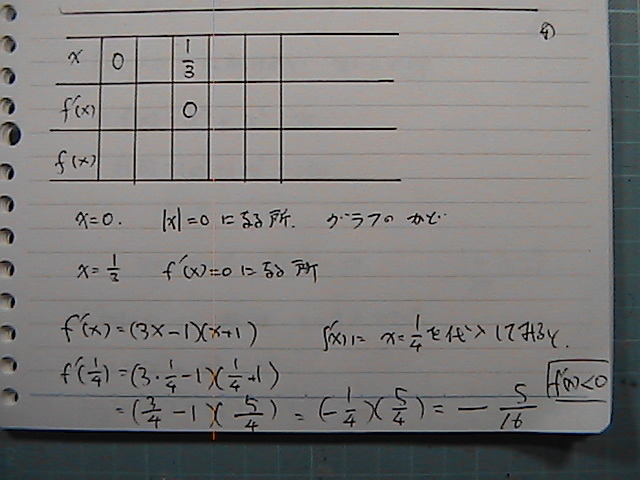 ④
x 0 1/3
f'(x) 0
f(x)
x=0. |x|=0 になる所. グラフの かど
x=1/3 f'(x)=0 になる所
f'(x)=(3x-1)(x+1) f'(x)に x=1/4 を代入してみると.
f'(1/4)=(3・1/4-1)(1/4+1)
=(3/4-1)(5/4)=(-1/4)(5/4)=-5/16 f'(x)<0